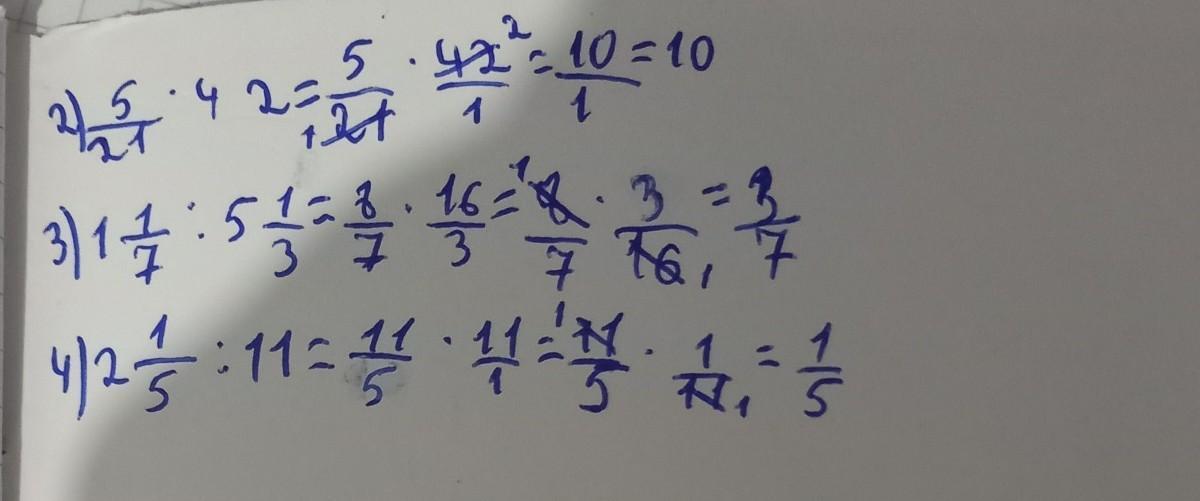 2) 5/21 · 42 = 5/21 1 · 42 2/1 = 10/1 = 10
3) 1 1/7 : 5 1/3 = 8/7 · 16/3 = 1 8/7 · 3/16 1 = 3/7
4) 2 1/5 : 11 = 11/5 · 11/1 = 1 11/5 · 1/11 1 = 1/5